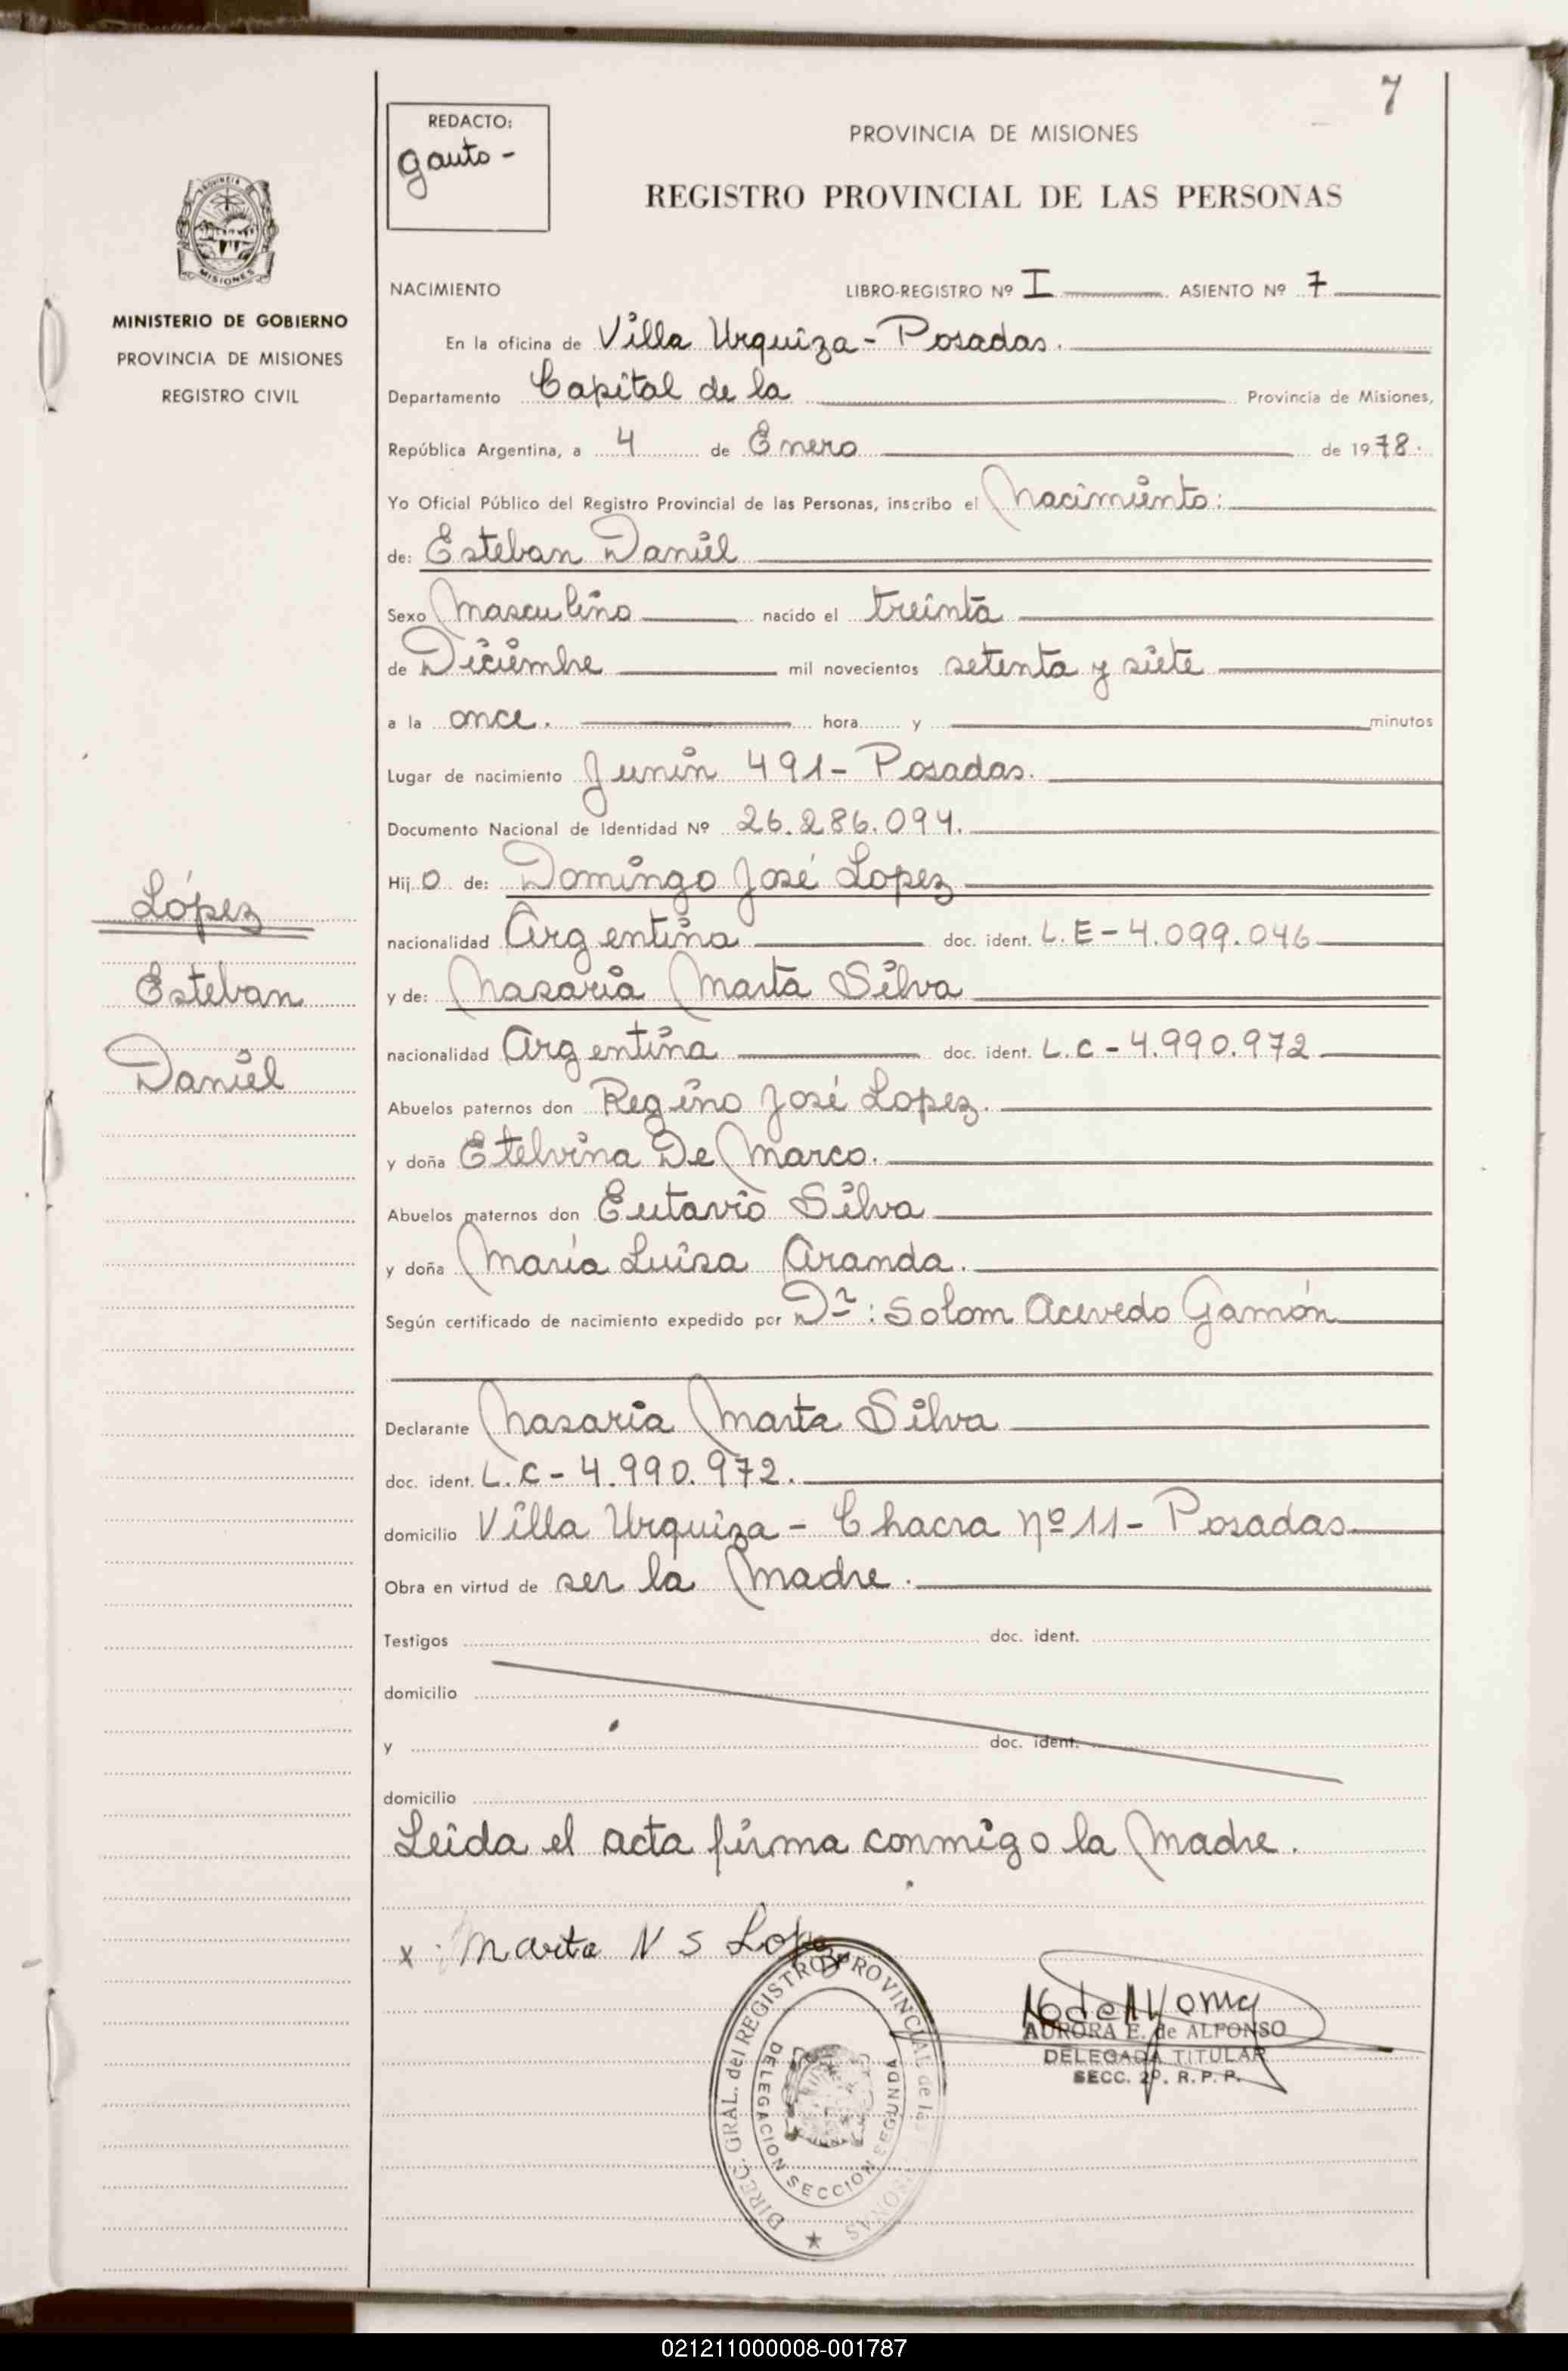 7
REDACTO:
Gauto -
PROVINCIA DE MISIONES
REGISTRO PROVINCIAL DE LAS PERSONAS
PROVINCIA DE
MISIONES
MINISTERIO DE GOBIERNO
PROVINCIA DE MISIONES
REGISTRO CIVIL
NACIMIENTO LIBRO-REGISTRO Nº I ASIENTO Nº 7
En la oficina de Villa Urquiza - Posadas.
Departamento Capital de la Provincia de Misiones,
República Argentina, a 4 de Enero de 1978.
Yo Oficial Público del Registro Provincial de las Personas, inscribo el Nacimiento:
de: Esteban Daniel
Sexo Masculino nacido el treinta
de Diciembre mil novecientos setenta y siete
a la once. hora y minutos
Lugar de nacimiento Junin 491 - Posadas.
Documento Nacional de Identidad Nº 26.286.094.
Hijo de: Domingo José Lopez
nacionalidad Argentina doc. ident. L.E - 4.099.046
y de: Nasaria Marta Silva
nacionalidad Argentina doc. ident. L.C - 4.990.972
Abuelos paternos don Regino José Lopez.
y doña Etelvina De Marco.
Abuelos maternos don Eutavio Silva
y doña María Luisa Aranda.
Según certificado de nacimiento expedido por Dr: Solom Acevedo Gamón
Declarante Nasaria Marta Silva
doc. ident. L.C - 4.990.972.
domicilio Villa Urquiza - Chacra nº 11 - Posadas
Obra en virtud de ser la madre.
Testigos doc. ident.
domicilio
y doc. ident.
domicilio
Leida el acta firma conmigo la madre.
López
Esteban
Daniel
x Marta N S Lopez
DIREC. GRAL. del REGISTRO PROVINCIAL de las PERSONAS
DELEGACION SECCION SEGUNDA
AURORA E. de ALFONSO
DELEGADA TITULAR
SECC. 2º. R. P. P.
021211000008-001787